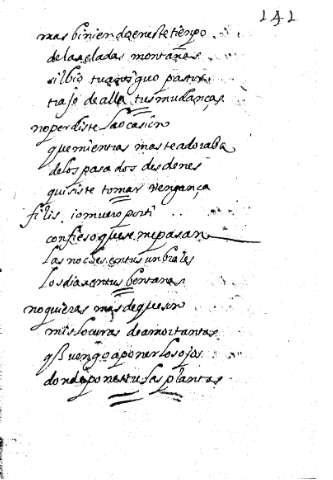 141
mas biniendo en este tienpo
de las eladas montañas
silbio tu antiguo pastor
trajo de alla tus mudanças
no perdiste la ocasion
que mientras mas te adoraba
de los pasados desdenes
quisiste tomar vengança
filis io muero por ti
confieso que se me pasan
las noches en tus unbrales
los dias en tus bentanas
no quieras mas de que son
mis locuras de amor tantas
q̃ vengo a poner los ojos
donde pones tu las plantas